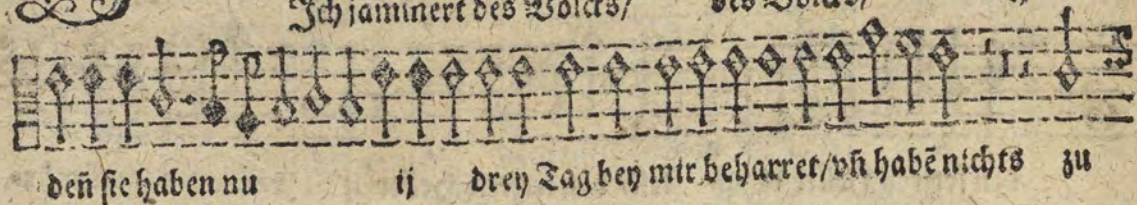 Jch jammert des Volcks/ des Volcks/
deñ sie haben nu ij drey Tag bey mir beharret/vñ habẽ nichts zu